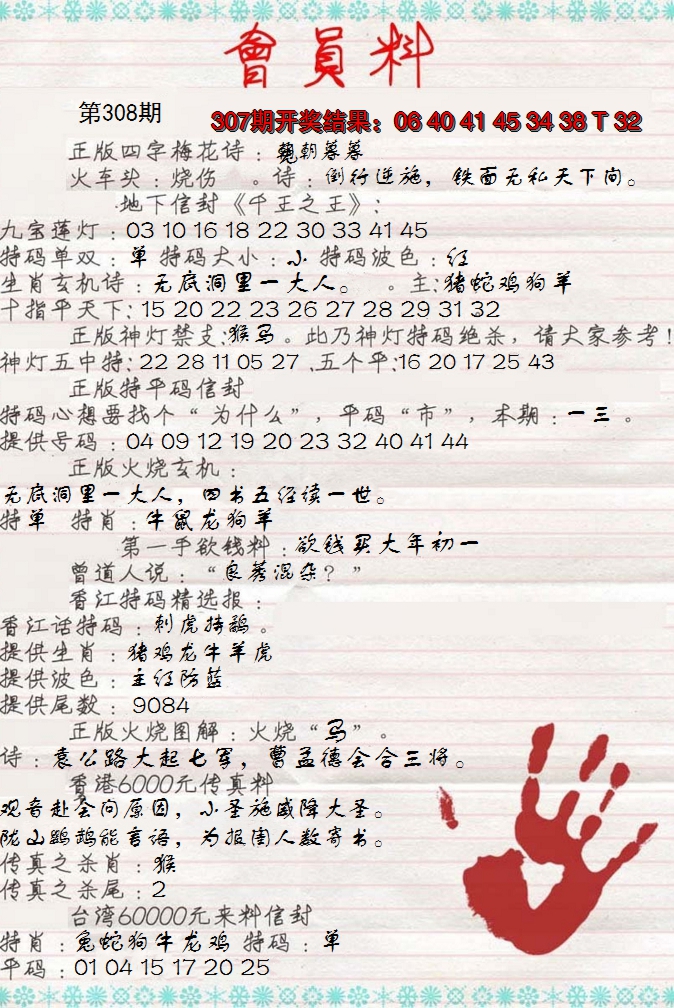 會員料
第308期
307期开奖结果：06 40 41 45 34 38 T 32
正版四字梅花诗：鵷朝暮暮
火车头：烧伤　。诗：倒行逆施，铁面无私天下间。
地下信封《千王之王》：
九宝莲灯：03 10 16 18 22 30 33 41 45
特码单双：单 特码大小：小 特码波色：红
生肖玄机诗：无底洞里一大人。　。主：猪蛇鸡狗羊
十指平天下：15 20 22 23 26 27 28 29 31 32
正版神灯禁支：猴马。此乃神灯特码绝杀，请大家参考！
神灯五中特：22 28 11 05 27 .五个平：16 20 17 25 43
正版特平码信封
特码心想要找个“为什么”，平码“市”，本期：一三。
提供号码：04 09 12 19 20 23 32 40 41 44
正版火烧玄机：
无底洞里一大人，四书五经读一世。
特单　特肖：牛鼠龙狗羊
第一手欲钱料：欲钱买大年初一
曾道人说：“良莠混杂？”
香江特码精选报：
香江话特码：刺虎持鹬。
提供生肖：猪鸡龙牛羊虎
提供波色：主红防蓝
提供尾数：9084
正版火烧图解：火烧“马”。
诗：袁公路大起七军，曹孟德会合三将。
香港6000元传真料
观音赴会问原因，小圣施威降大圣。
陇山鹦鹉能言语，为报闺人数寄书。
传真之杀肖：猴
传真之杀尾：2
台湾60000元来料信封
特肖：兔蛇狗牛龙鸡 特码：单
平码：01 04 15 17 20 25